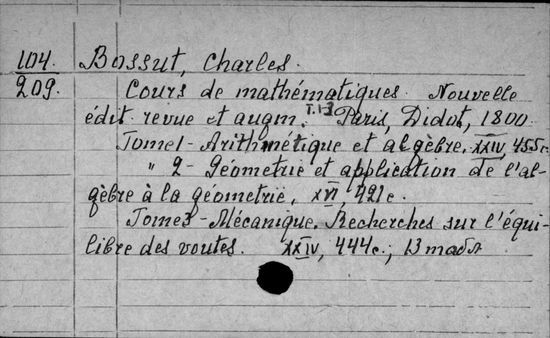 104. Bossut, Charles.
209. Cours de mathématiques. Nouvelle
édit. revue et augm. T.1-3 Paris, Didot, 1800.
Tome 1 - Arithmétique et algèbre. XXIV, 455 c.
" 2 - Géometrie et application de l'al-
gèbre à la géometrie, XVI, 421 c.
Tome 3 - Mécanique. Recherches sur l'équi-
libre des voutes. XXIV, 444 c.; 13